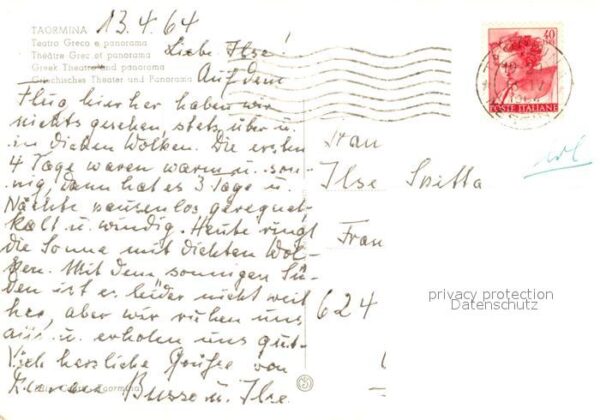 TAORMINA
13.4.64
Teatro Greco e panorama
Théâtre Grec et panorama
Greek Theatre and panorama
Griechisches Theater und Panorama
Liebe Ilse!
Auf dem
Flug hierher haben wir
nichts gesehen, stets über u.
in dicken Wolken. Die ersten
4 Tage waren warm u. son-
nig, dann hat es 3 Tage u.
Nächte pausenlos geregnet,
kalt u. windig. Heute ringt
die Sonne mit dichten Wol-
ken. Mit dem sonnigen Sü-
den ist es leider nicht weit
her, aber wir ruhen uns
aus u. erholen uns gut.
Viele herzliche Grüße von
Busse u. Ilse
40
POSTE ITALIANE
Frau
Ilse Spitta
Fran
624
privacy protection
Datenschutz